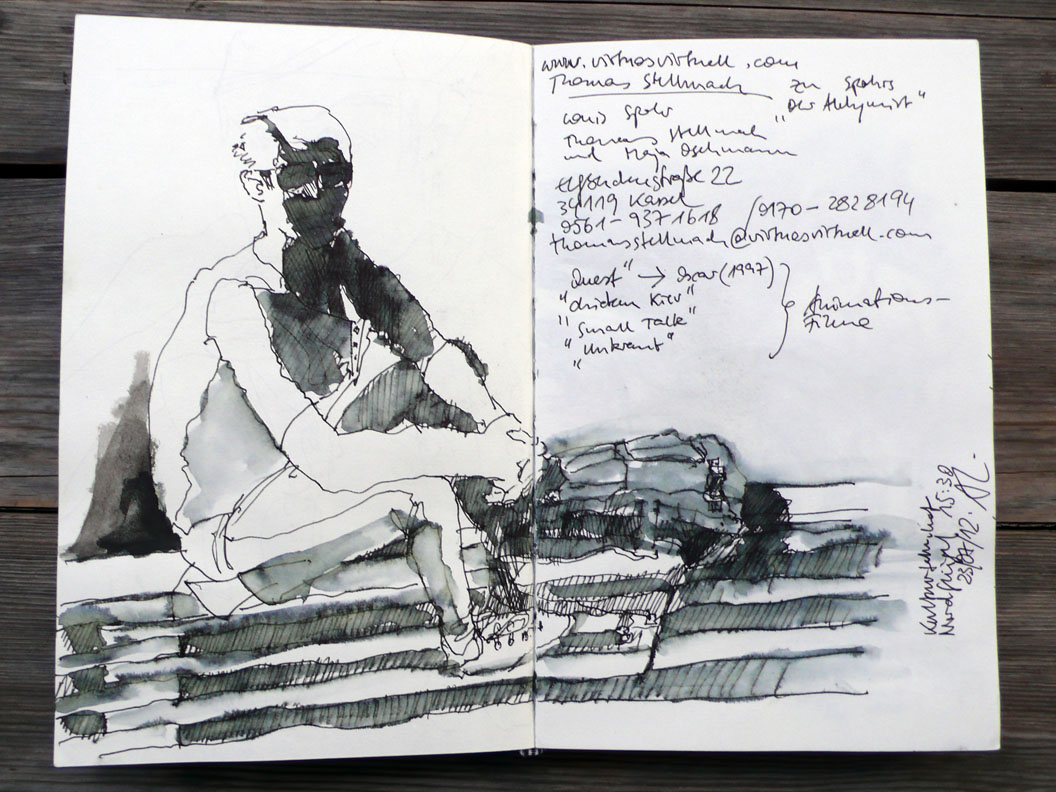 www.virtuosvirtuell.com
Thomas Stellmach
zu Spohrs
"Der Alchymist"
Louis Spohr
Thomas Stellmach
und Maja Oschmann
34119 Kassel
0561-9371618 / 0170-2828194
thomasstellmach@virtuosvirtuell.com
"Quest" → Oscar (1997)
"Chicken Kiev"
"Small Talk"
"Unkraut"
"
Animations-
Filme
Kulturbahnhof
Nordflügel 15:39